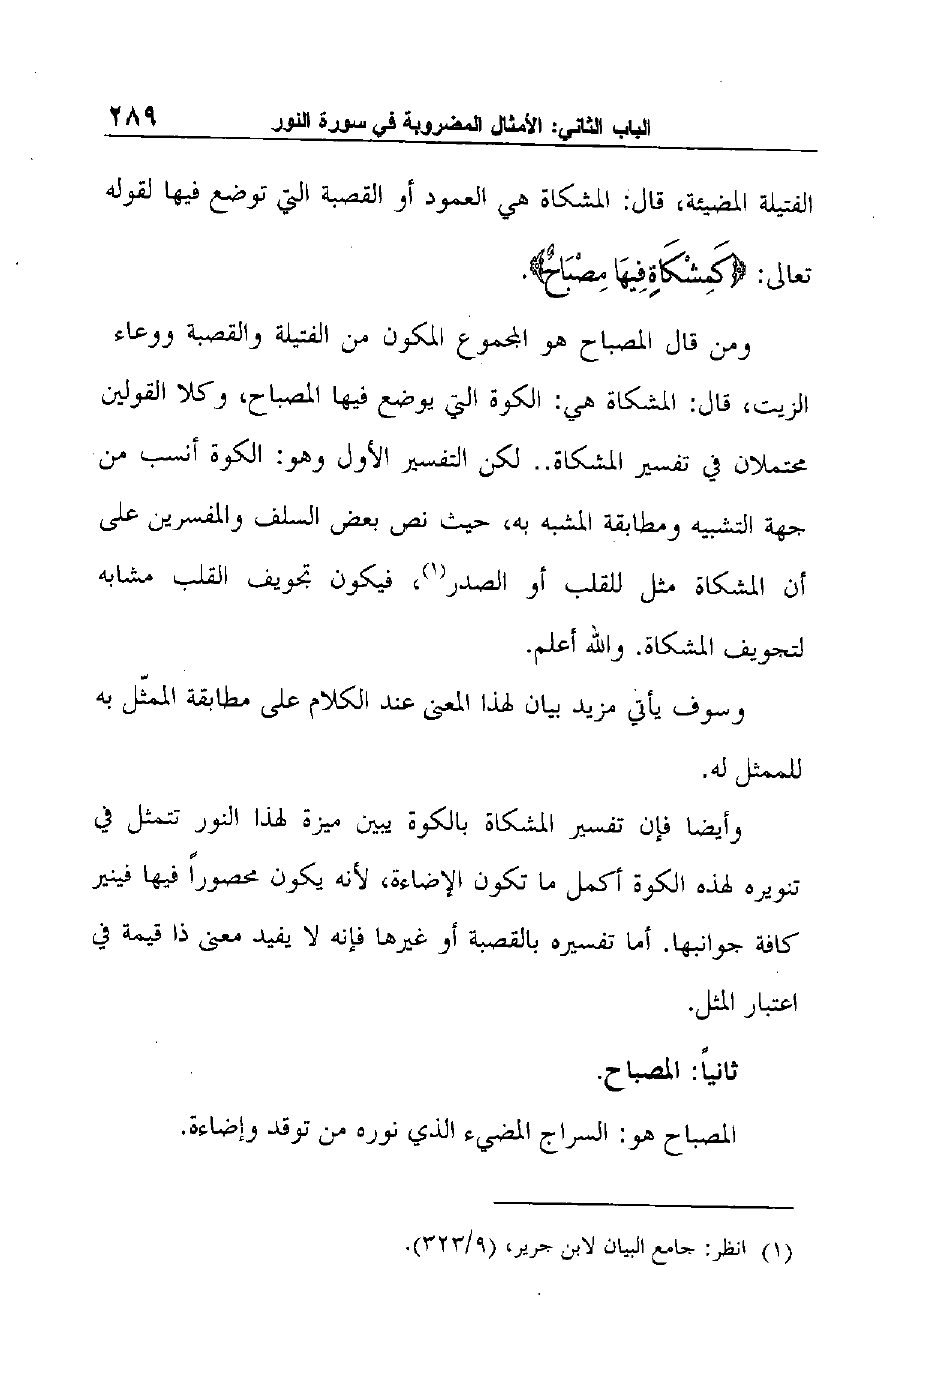 الباب الثاني: الأمثال المضروبة في سورة النور ٢٨٩
الفتيلة المضيئة، قال: المشكاة هي العمود أو القصبة التي توضع فيها لقوله
تعالى: ﴿كَمِشْكَاةٍ فِيهَا مِصْبَاحٌ﴾.
ومن قال المصباح هو المجموع المكون من الفتيلة والقصبة ووعاء
الزيت، قال: المشكاة هي: الكوة التي يوضع فيها المصباح، وكلا القولين
محتملان في تفسير المشكاة.. لكن التفسير الأول وهو: الكوة أنسب من
جهة التشبيه ومطابقة المشبه به، حيث نص بعض السلف والمفسرين على
أن المشكاة مثل للقلب أو الصدر(١)، فيكون تجويف القلب مشابه
لتجويف المشكاة. والله أعلم.
وسوف يأتي مزيد بيان لهذا المعنى عند الكلام على مطابقة الممثّل به
للممثل له.
وأيضا فإن تفسير المشكاة بالكوة يبين ميزة لهذا النور تتمثل في
تنويره لهذه الكوة أكمل ما تكون الإضاءة، لأنه يكون محصوراً فيها فينير
كافة جوانبها. أما تفسيره بالقصبة أو غيرها فإنه لا يفيد معنى ذا قيمة في
اعتبار المثل.
ثانياً: المصباح.
المصباح هو: السراج المضيء الذي نوره من توقد وإضاءة.
(١) انظر: جامع البيان لابن جرير، (٣٢٣/٩).